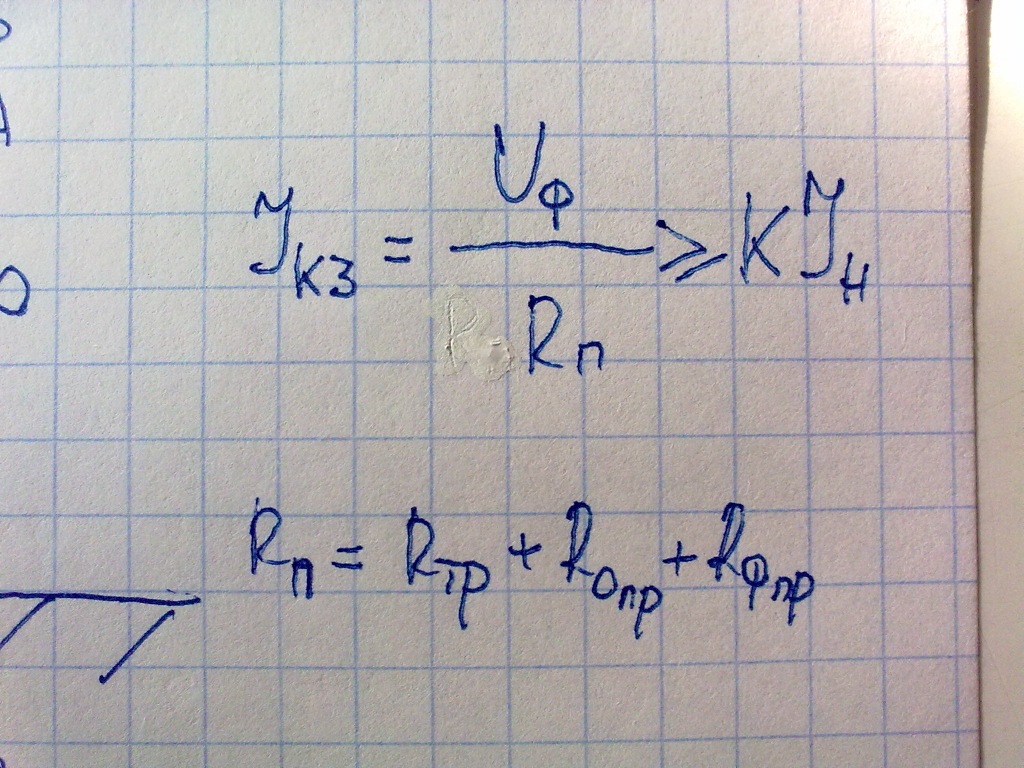 I_КЗ = U_Ф / R_П ≥ K I_Н
R_П = R_ТР + R_0ПР + R_ФПР